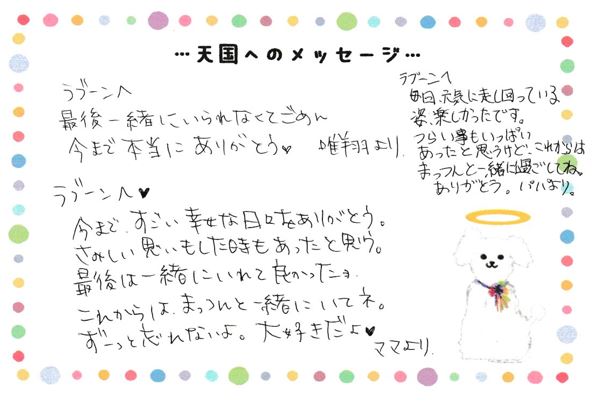 …天国へのメッセージ…
ラブーンへ
最後一緒にいられなくてごめん
今まで本当にありがとう♥ 唯翔より
ラブーンへ
毎日、元気に走り回っている
姿、楽しかったです。
つらい事もいっぱい
あったと思うけど、これからは
まっつんと一緒に過ごしてね。
ありがとう。パパより。
ラブーンへ♥
今まで、すごい幸せな日々をありがとう。
さみしい思いもした時もあったと思う。
最後は一緒にいれて良かったョ
これからは、まっつんと一緒にいてネ。
ずーっと忘れないよ。大好きだよ♥
ママより.